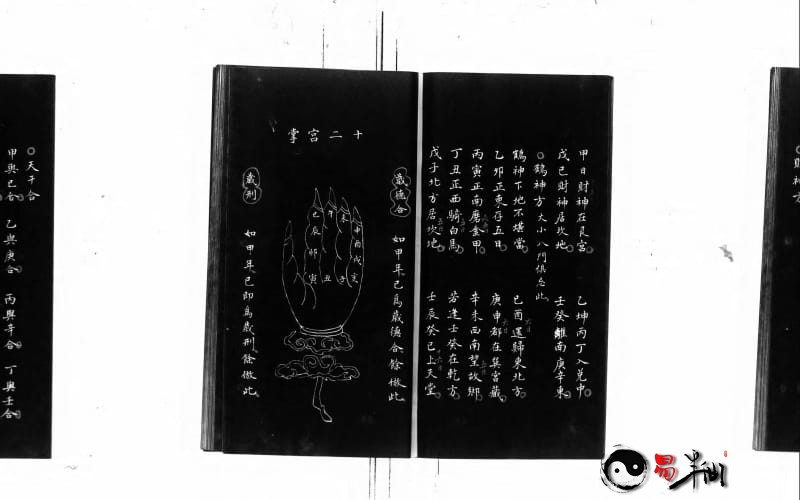 財神方
甲日財神在艮宮　乙坤丙丁入兌中
戊己財神居坎地　壬癸離南庚辛東
○鶴神方 大小八門俱忌此
鶴神下地不堪當　己酉還歸東北方
乙卯正東存五日　庚申都在巽宮藏
丙寅正南磨金甲　辛未西南望故鄉
丁丑正西騎白馬　若逢壬癸在乾方
戊子北方居坎地　壬辰癸巳上天堂
歲德合　如甲年己爲歲德合餘倣此
十二宮掌
申酉戌亥
未
子
午
丑
巳辰卯寅
歲刑　如甲年巳即爲歲刑餘倣此
○天干合
甲與己合　乙與庚合　丙與辛合　丁與壬合
易半仙